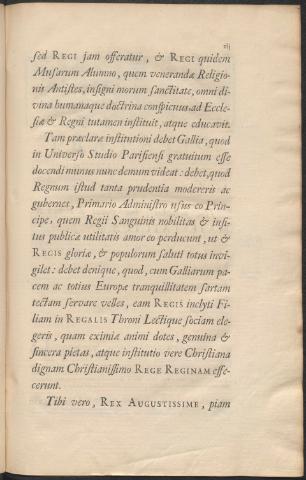 iij
sed REGI jam offeratur, & REGI quidem
Musarum Alumno, quem venerandæ Religio-
nis Antistes, insigni morum sanctitate, omni di-
vina humanaque doctrina conspicuus, ad Eccle-
siæ & Regni tutamen instituit, atque educavit.
Tam præclaræ institutioni debet Gallia, quod
in Universo Studio Parisiensi gratuitum esse
docendi munus nunc demum videat: debet, quod
Regnum istud tanta prudentia modereris ac
gubernes, Primario Administro usus eo Prin-
cipe, quem Regii Sanguinis nobilitas & insi-
tus publicæ utilitatis amor eo perducunt, ut &
REGIS gloriæ, & populorum saluti totus invi-
gilet: debet denique, quod, cum Galliarum pa-
cem ac totius Europæ tranquillitatem sartam
tectam servare velles, eam REGIS inclyti Fi-
liam in REGALIS Throni Lectique sociam ele-
geris, quam eximiæ animi dotes, genuina &
sincera pietas, atque institutio vere Christiana
dignam Christianissimo REGE REGINAM effe-
cerunt.
Tibi vero, REX AUGUSTISSIME, piam